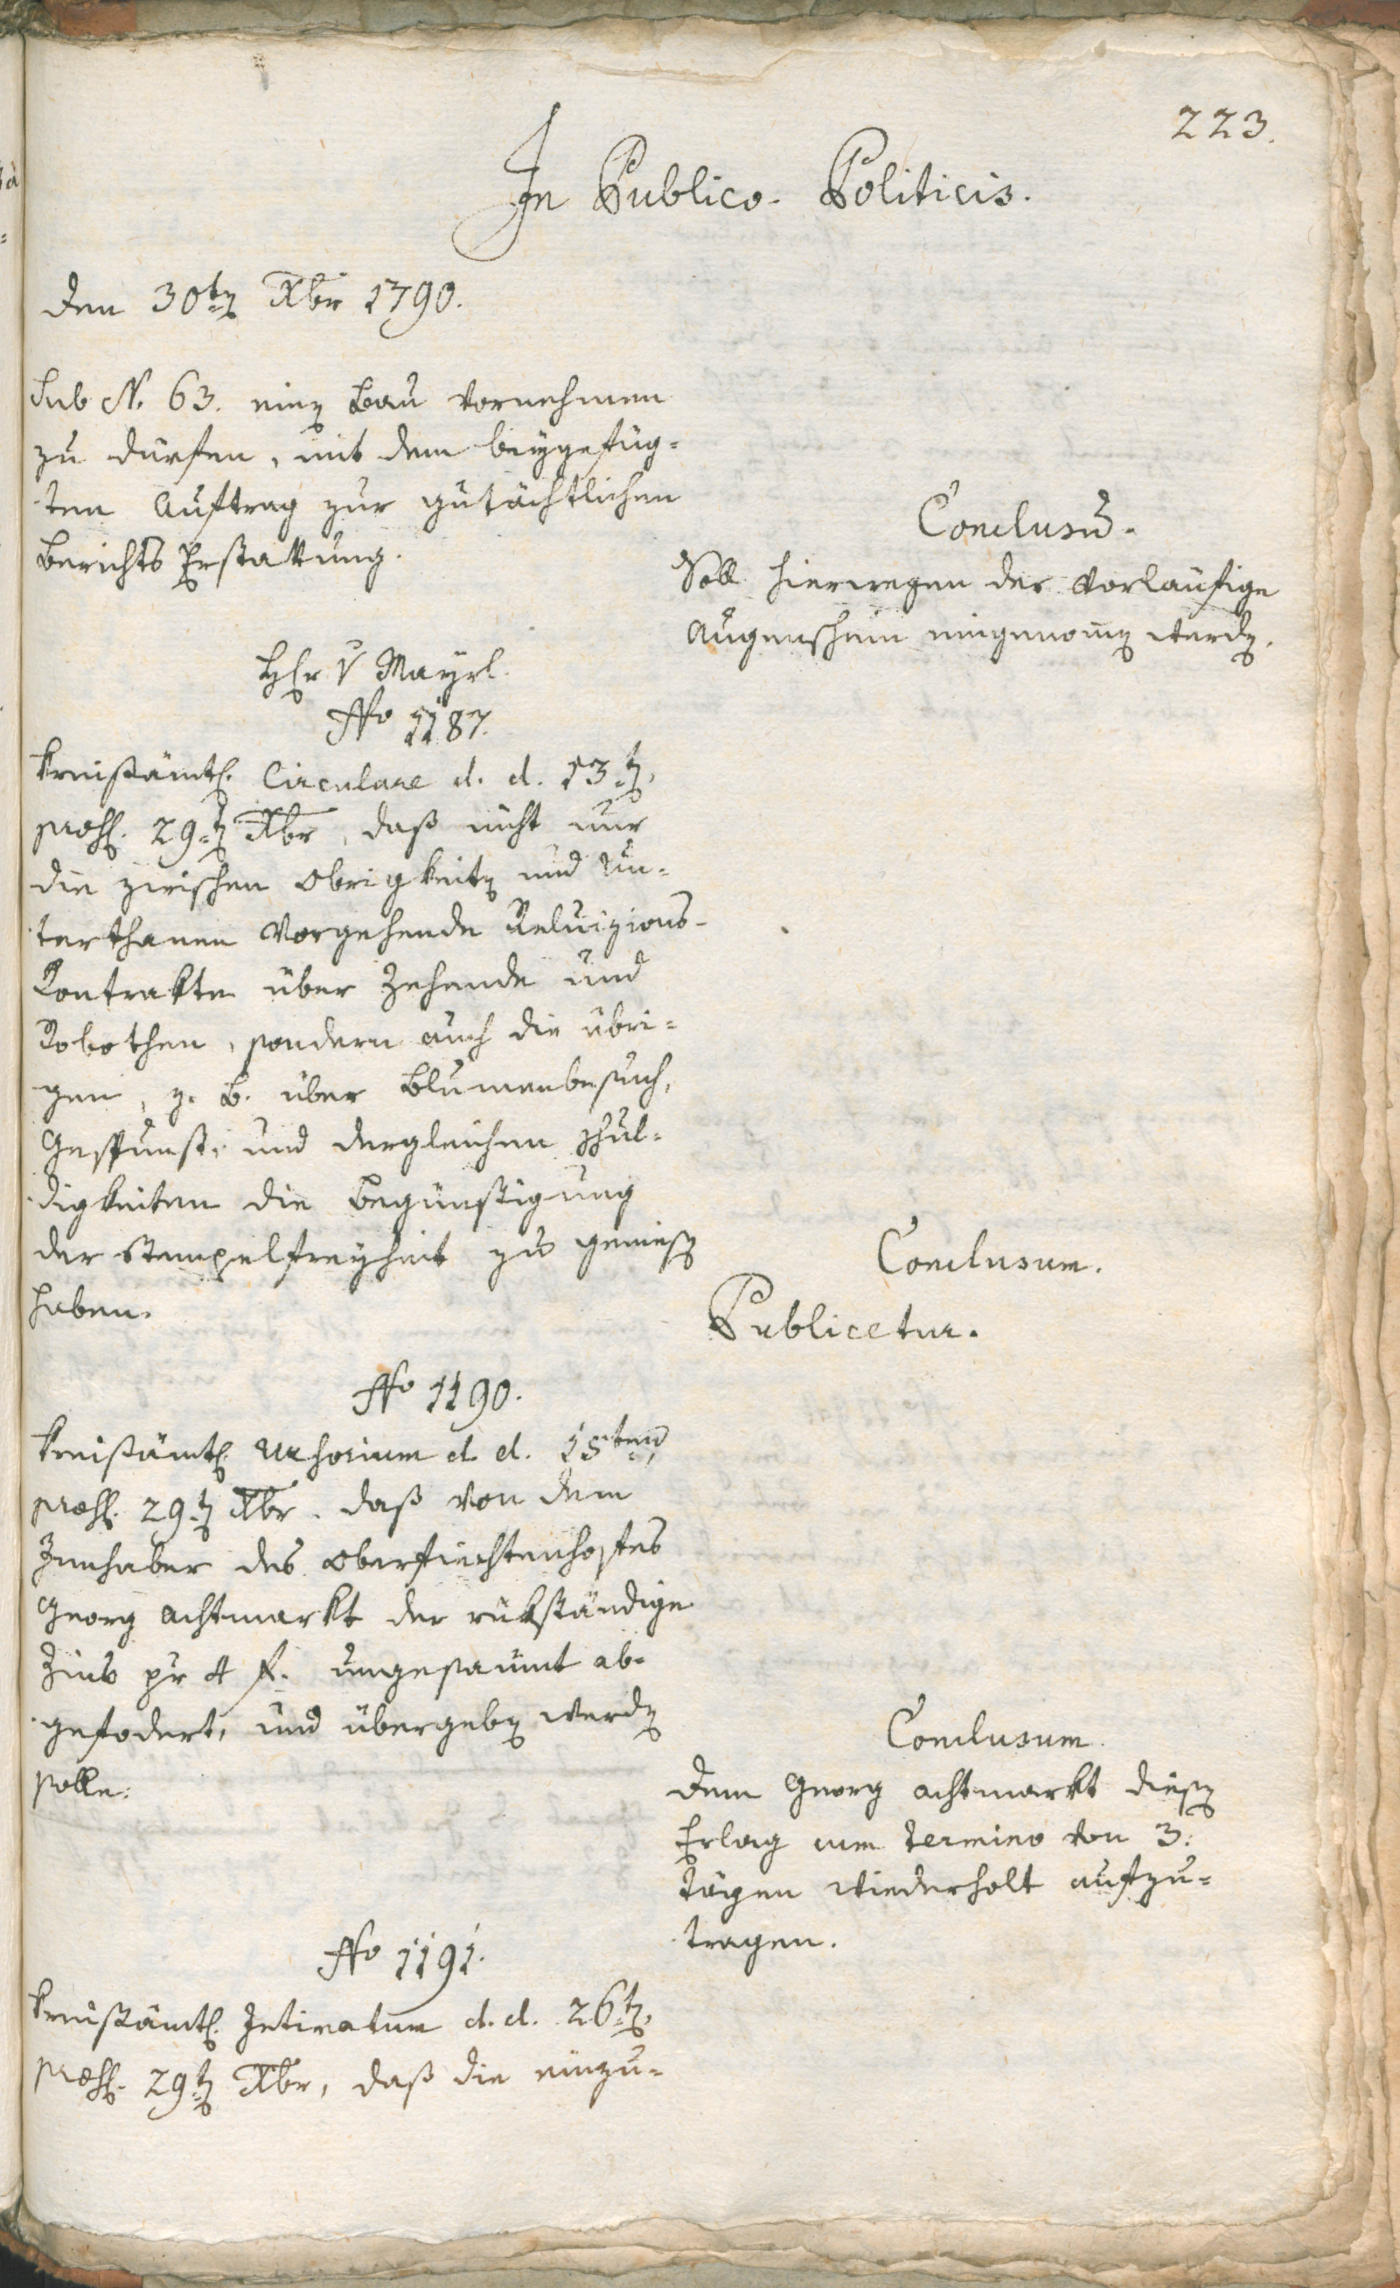 223.
In Publico-Politicis.
den 30ten Xbr 1790.
Sub N. 63. einen Bau vornehmen
zu dürfen, mit dem beygefüg-
ten Auftrag zur gutächtlichen
Berichts Erstattung.
Conclusum.
Soll hierwegen der vorläufige
Augenschein eingenommen werden.
Hr v Mayrl.
No 1187.
Kreisämtl. Circulare d. d. 13ten,
praes. 29ten Xbr, daß nicht nur
die zwischen Obrigkeiten und Un-
terthanen vorgehende Reluizions-
Kontrakte über Zehende und
Robothen, sondern auch die übri-
gen, z. B. über Blumenbesuch,
Gespunst, und dergleichen Schul-
digkeiten die Begünstigung
der Stempelfreyheit zu geniessen
haben.
Conclusum.
Publicetur.
No 1190.
Kreisämtl. Urhorium d. d. 15ten,
praes. 29ten Xbr. daß von dem
Innhaber des Oberfiechtenhofes
Georg Achtmarkt der rükständige
Zins pr 4 f. ungesaumt ab-
gefodert, und übergeben werden
solle.
Conclusum.
Dem Georg Achtmarkt diesen
Erlag cum Termino von 3:
Tägen wiederholt aufzu-
tragen.
No 1191.
Kreisämtl. Intimatum d. d. 26ten,
praes. 29ten Xbr, daß die einzu-